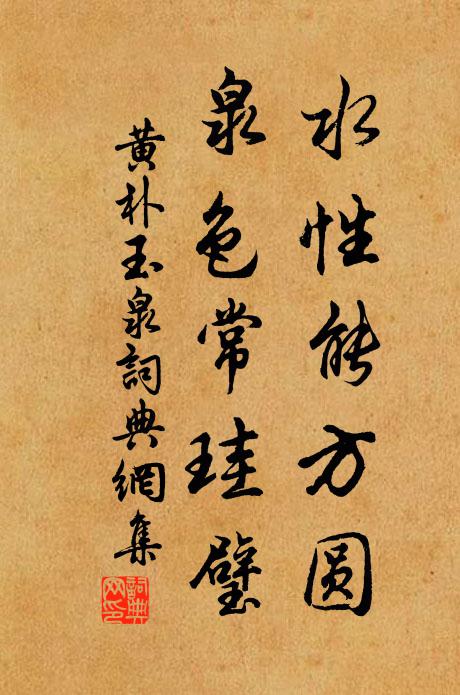 水性能方圆
泉色常珪璧
黄朴玉泉詞典網集
詞典网印